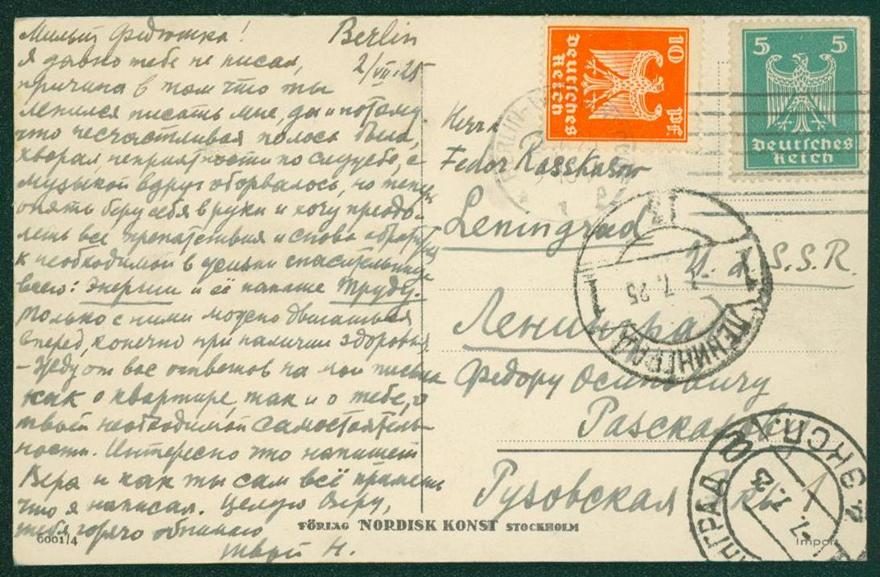 Милый Федюшка!
Berlin
2/VII-25
Я давно тебе не писал,
причина в том что ты
ленился писать мне, да и потому
что несчастливая полоса была,
хворал, неприятности по службе, с
музыкой вдруг оборвалось, но теперь
опять беру себя в руки и хочу преодо-
леть все препятствия и снова
к необходимой в
всего: Энергии и её накале Труду.
только с ними можно двигаться
вперед, конечно при наличии здоровья
- Жду от вас ответов на мои письма
как о квартире, так и о тебе, о
твоей необходимой самостоятель-
ности. Интересно что напишет
Вера и как ты сам всё
что я написал. Целую Веру,
тебя горячо обнимаю
твой Н.
10 Pf
Deutsches
Reich
5 5
Deutsches
Reich
Herrn
Fedor Rasskasow
Leningrad
U. S. S. R.
Ленинград
Федору Осиповичу
Разсказову
Рузовская
ЛЕНИНГРАД
7.25
FÖRLAG NORDISK KONST STOCKHOLM
6001/4
Import